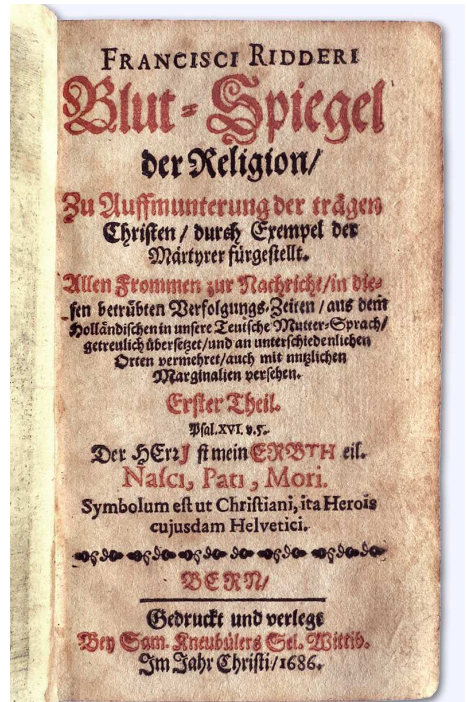 FRANCISCI RIDDERI
Blut-Spiegel
der Religion/
Zu Auffmunterung der trägen
Christen / durch Exempel der
Märtyrer fürgestellt.
Allen Frommen zur Nachricht/in die-
sen betrübten Verfolgungs-Zeiten / aus dem
Holländischen in unsere Teutsche Mutter-Sprach/
getreulich übersetzet/und an unterschiedenlichen
Orten vermehret/auch mit nutzlichen
Marginalien versehen.
Erster Theil.
Psal. XVI. v.5.
Der HErrJ st mein ERBTH eil.
Nasci, Pati, Mori.
Symbolum est ut Christiani, ita Herois
cujusdam Helvetici.
BERN/
Gedruckt und verlegt
Bey Sam. Kneubülers Sel. Wittib.
Im Jahr Christi/1686.